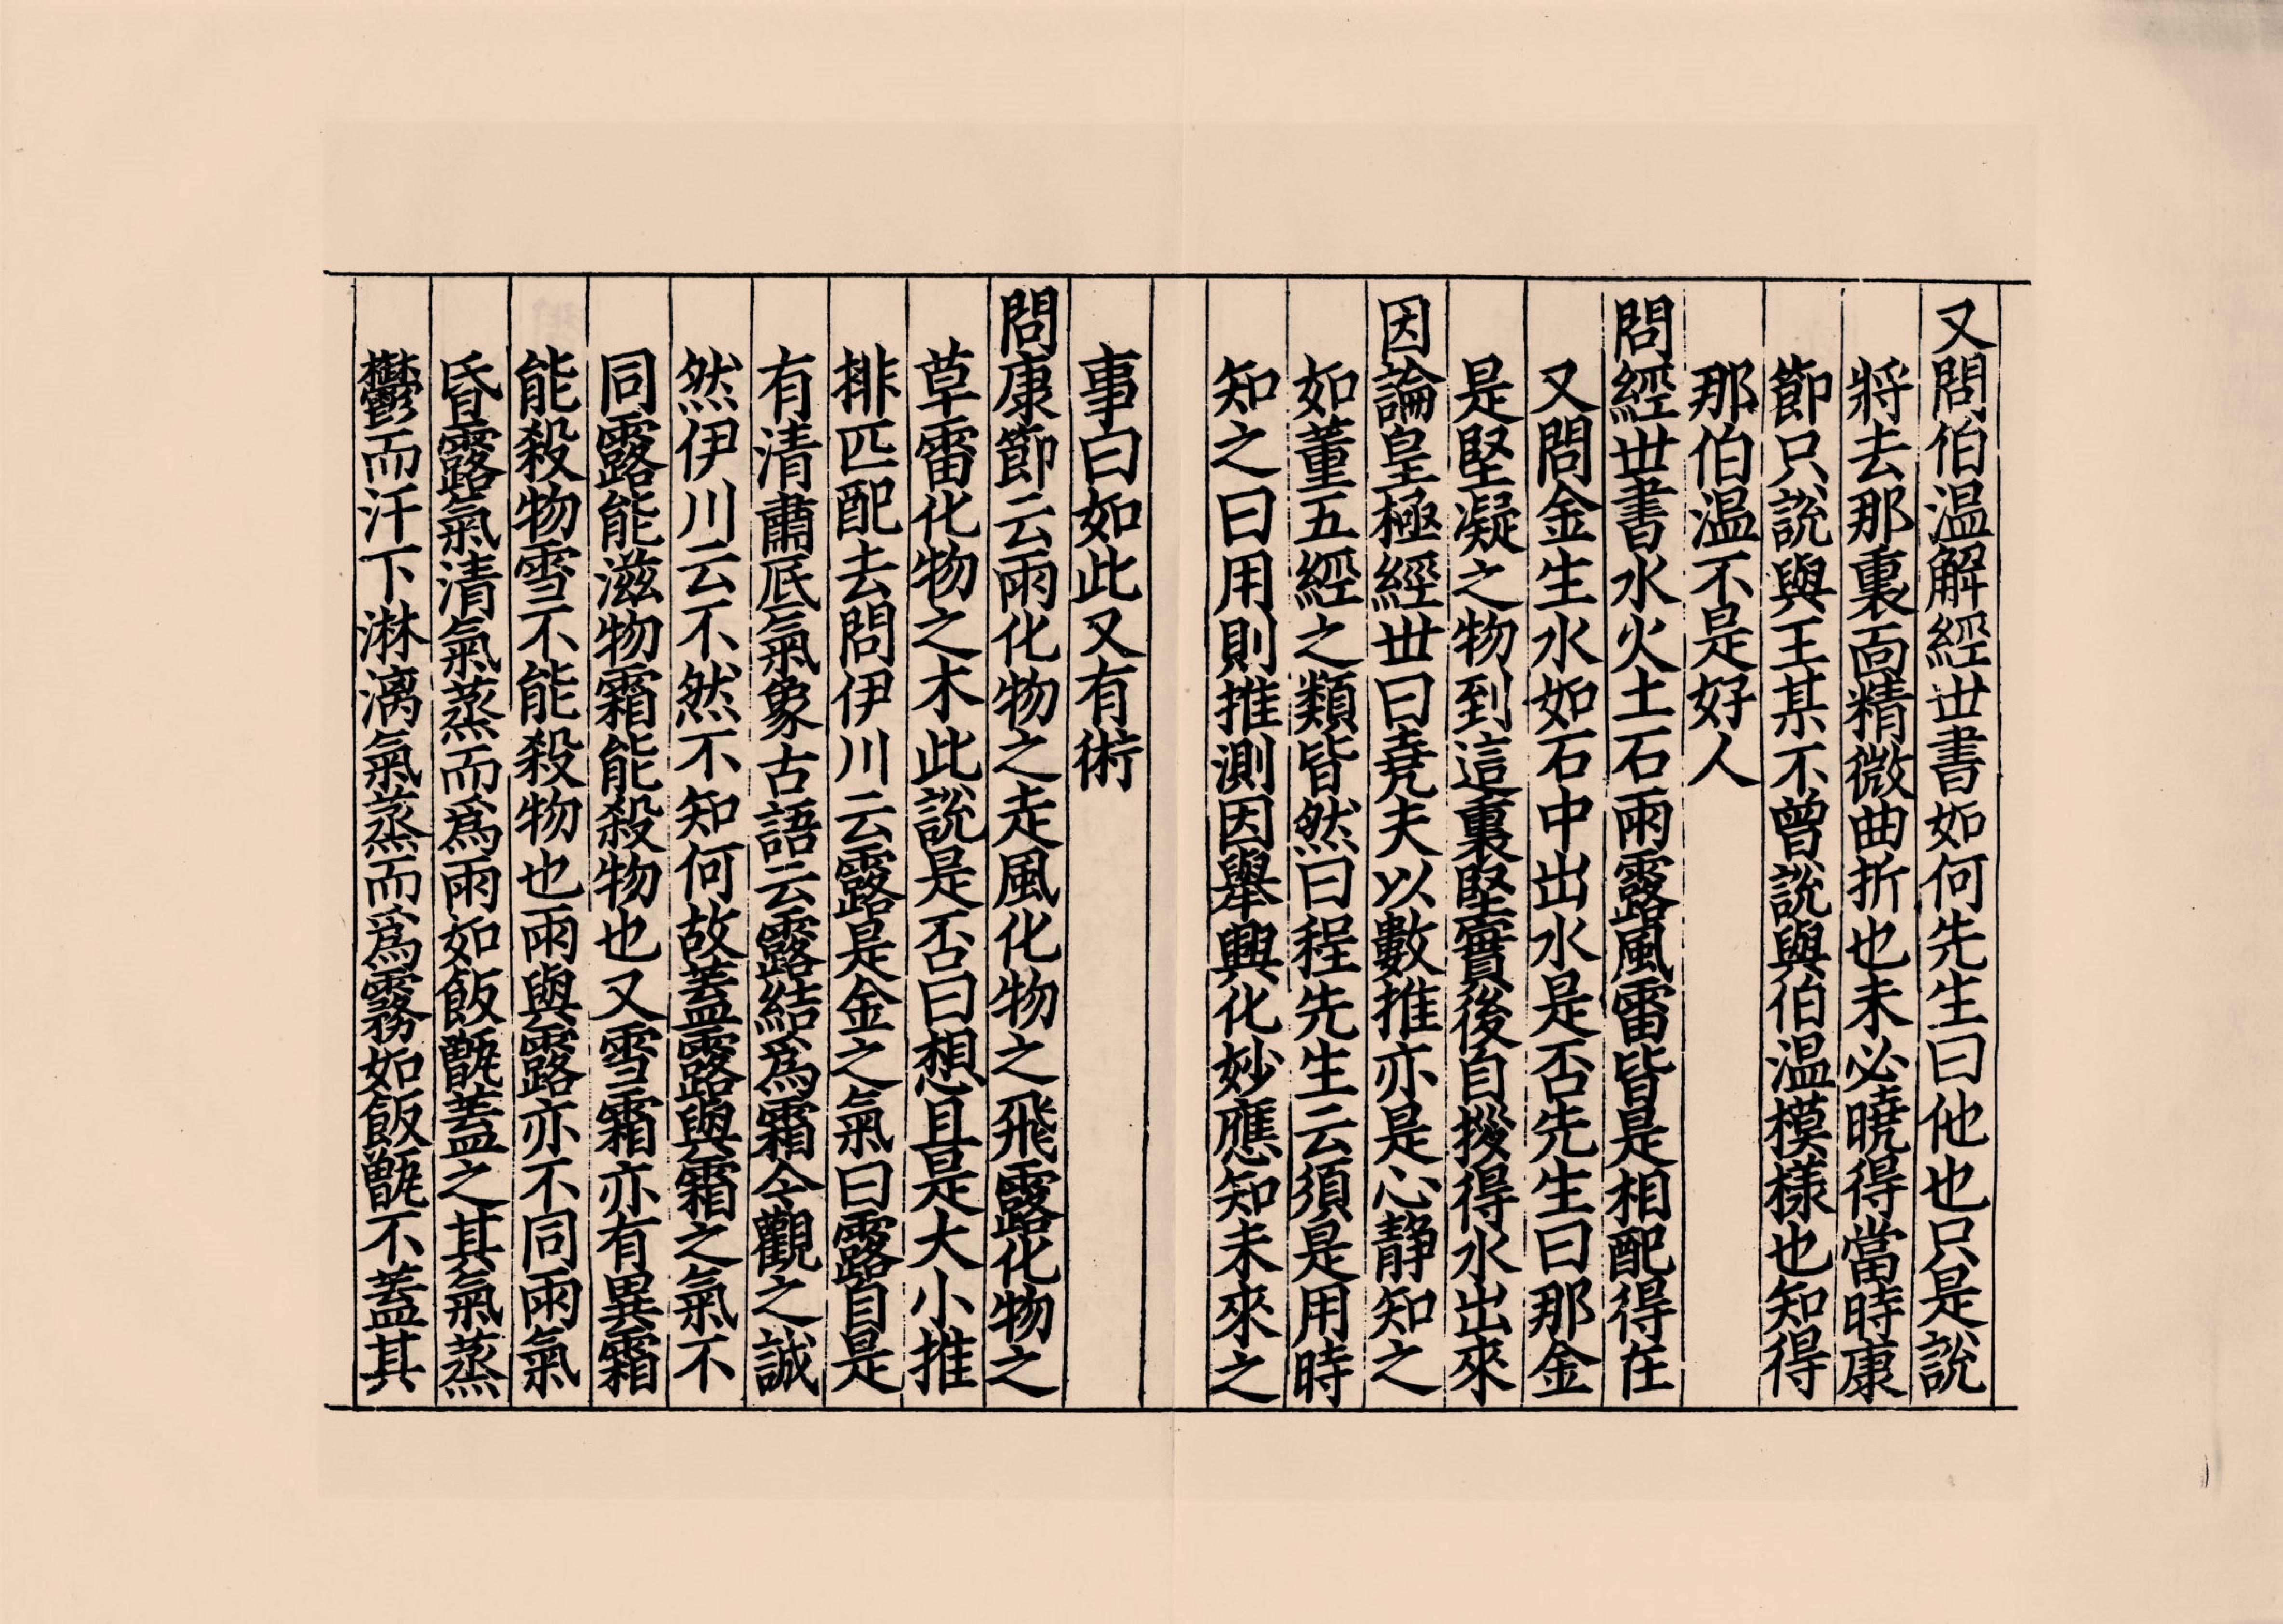 又問伯温解經丗書如何先生曰他也只是說
將去那裏面精微曲折也未必曉得當時康
節只說與王某不曾說與伯温模樣也知得
那伯温不是好人
問經丗書水火土石雨露風雷皆是相配得在
又問金生水如石中出水是否先生曰那金
是堅凝之物到這裏堅實後自拶得水出來
因論皇極經丗曰堯夫以數推亦是心靜知之
如董五經之類皆然曰程先生云須是用時
知之曰用則推測因舉興化妙應知未來之
事曰如此又有術
問康節云雨化物之走風化物之飛露化物之
草雷化物之木此說是否曰想且是大小推
排匹配去問伊川云露是金之氣曰露自是
有清肅底氣象古語云露結爲霜今觀之誠
然伊川云不然不知何故蓋露與霜之氣不
同露能滋物霜能殺物也又雪霜亦有異霜
能殺物雪不能殺物也雨與露亦不同雨氣
昏露氣清氣蒸而爲雨如飯甑蓋之其氣蒸
鬱而汗下淋漓氣蒸而爲霧如飯甑不蓋其